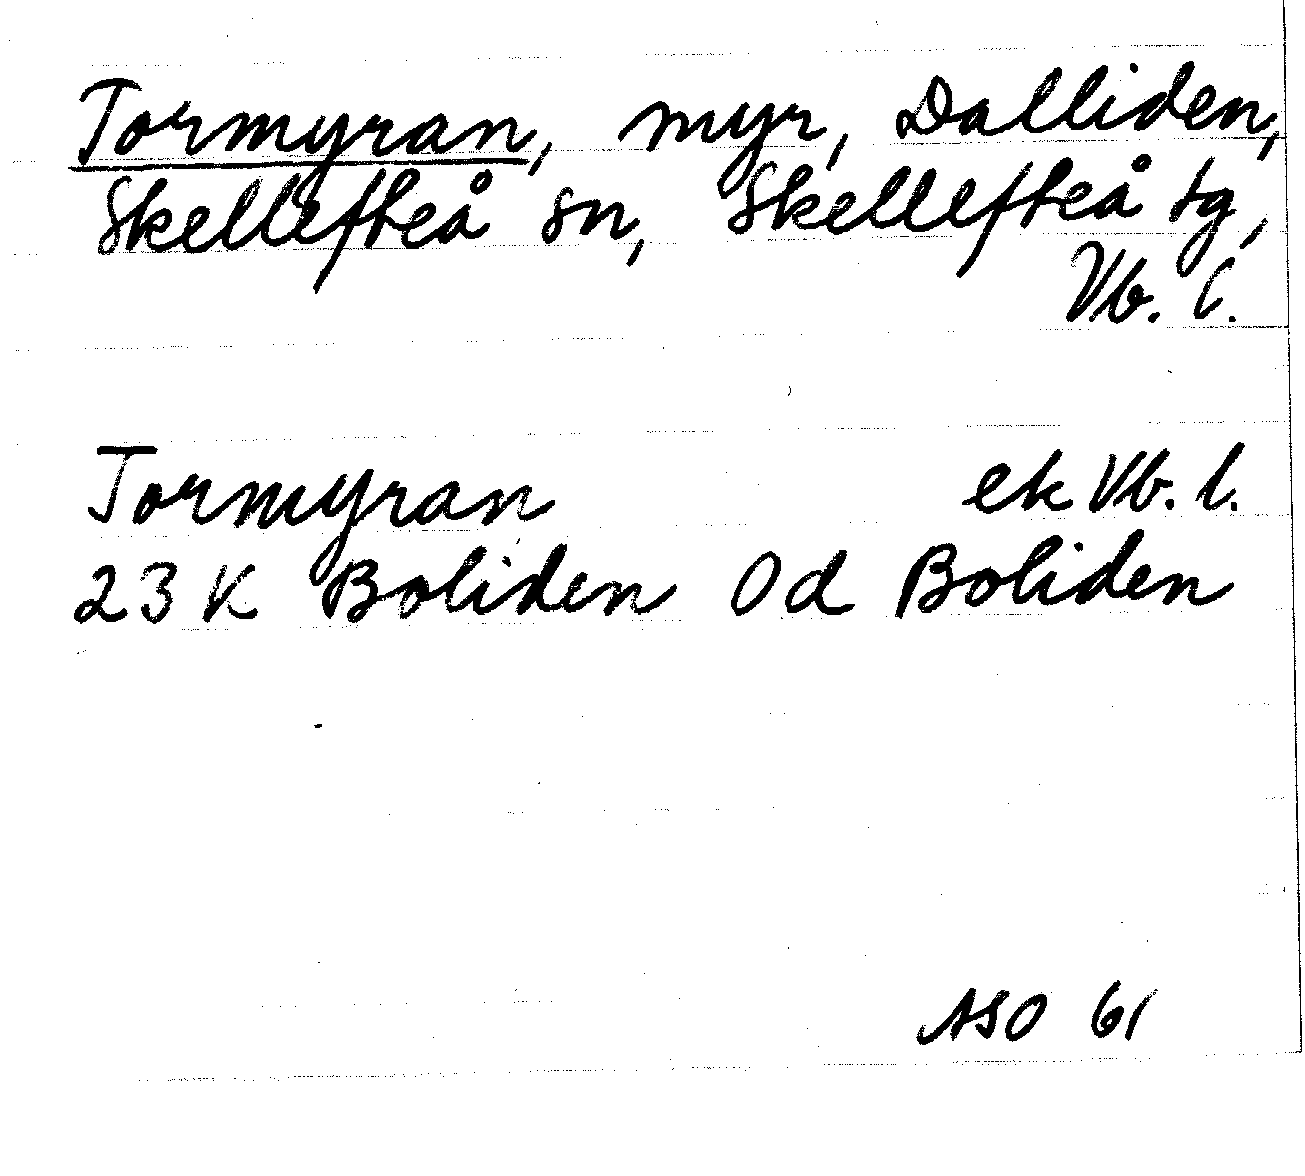 Tormyran, myr, Dalliden,
Skellefteå sn, Skellefteå tg,
Vb. l.
Tormyran ek Vb. l.
23 K Boliden 0d Boliden
ASO 61